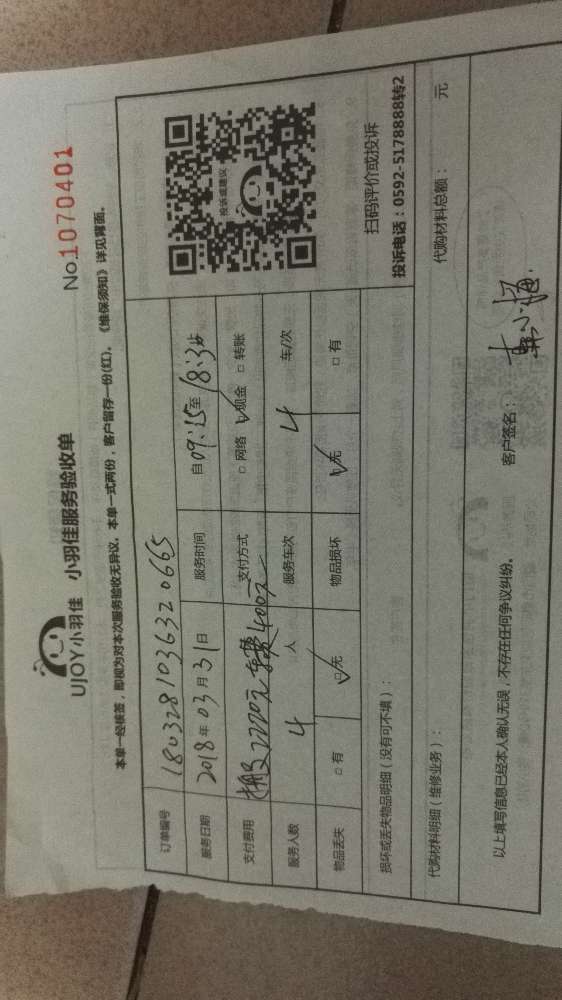 UJOY小羽佳 小羽佳服务验收单
No.1070401
本单一经核签，即视为对本次服务验收无异议，本单一式两份，客户留存一份(红)。《维保须知》详见背面。
订单编号 180328103632 0665
服务日期 2018年03月31日 服务时间 自09:15至18:36
支付费用 搬家2220元 车费400元 支付方式 □网络 √现金 □转账
服务人数 4 人 服务车次 4 车/次
物品丢失 □有 √无 物品损坏 √无 □有
投诉或建议
扫码评价或投诉
投诉电话：0592-5178888转2
损坏或丢失物品明细（没有可不填）：
代购材料明细（维修业务）： 代购材料总额： 元
以上填写信息已经本人确认无误，不存在任何争议纠纷。 客户签名：